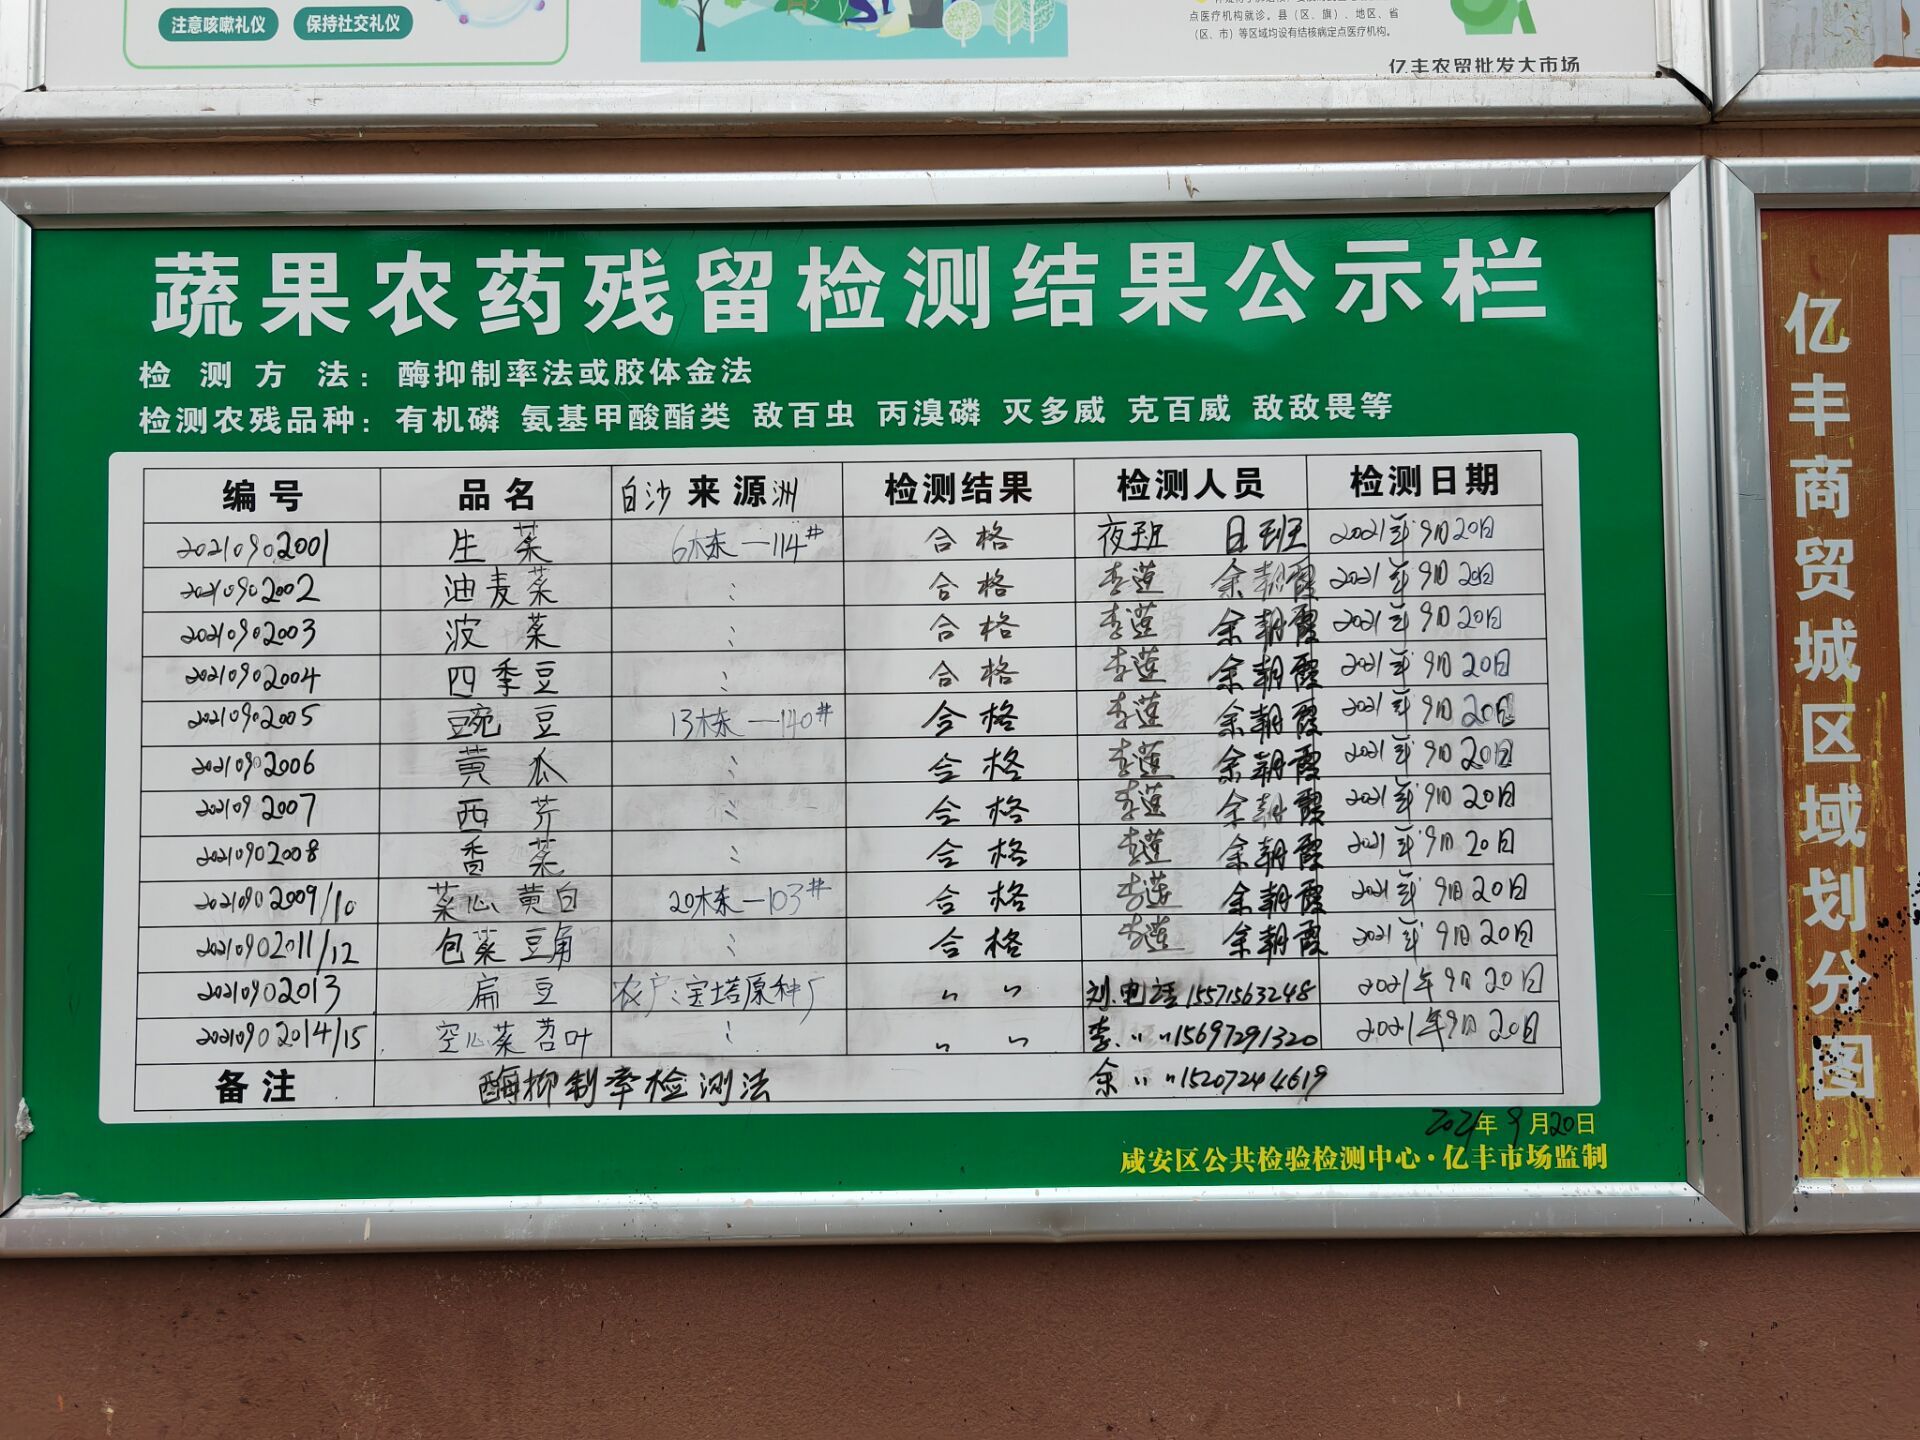 注意咳嗽礼仪 保持社交礼仪
点医疗机构就诊。县（区、旗）、地区、省
（区、市）等区域均设有结核病定点医疗机构。
亿丰农贸批发大市场
蔬果农药残留检测结果公示栏
检测方法：酶抑制率法或胶体金法
检测农残品种：有机磷 氨基甲酸酯类 敌百虫 丙溴磷 灭多威 克百威 敌敌畏等
编号 品名 白沙来源洲 检测结果 检测人员 检测日期
20210902001 生菜 6栋—114# 合格 夜班 日班 2021年9月20日
20210902002 油麦菜 〃 合格 李莲 余朝霞 2021年9月20日
20210902003 波菜 〃 合格 李莲 余朝霞 2021年9月20日
20210902004 四季豆 〃 合格 李莲 余朝霞 2021年9月20日
20210902005 豌豆 13栋—140# 合格 李莲 余朝霞 2021年9月20日
20210902006 黄瓜 〃 合格 李莲 余朝霞 2021年9月20日
202109 2007 西芹 〃 合格 李莲 余朝霞 2021年9月20日
20210902008 香菜 〃 合格 李莲 余朝霞 2021年9月20日
20210902009/10 菜心 黄白 20栋—103# 合格 李莲 余朝霞 2021年9月20日
20210902011/12 包菜 豆角 〃 合格 李莲 余朝霞 2021年9月20日
20210902013 扁豆 农户：宝塔原种厂 〃 〃 刘.电话15571563248 2021年9月20日
20210902014/15 空心菜 苕叶 〃 〃 〃 李.〃 〃15697291320 2021年9月20日
备注 酶抑制率检测法 余〃 〃15207244619
2021年9月20日
咸安区公共检验检测中心·亿丰市场监制
亿丰商贸城区域划分图